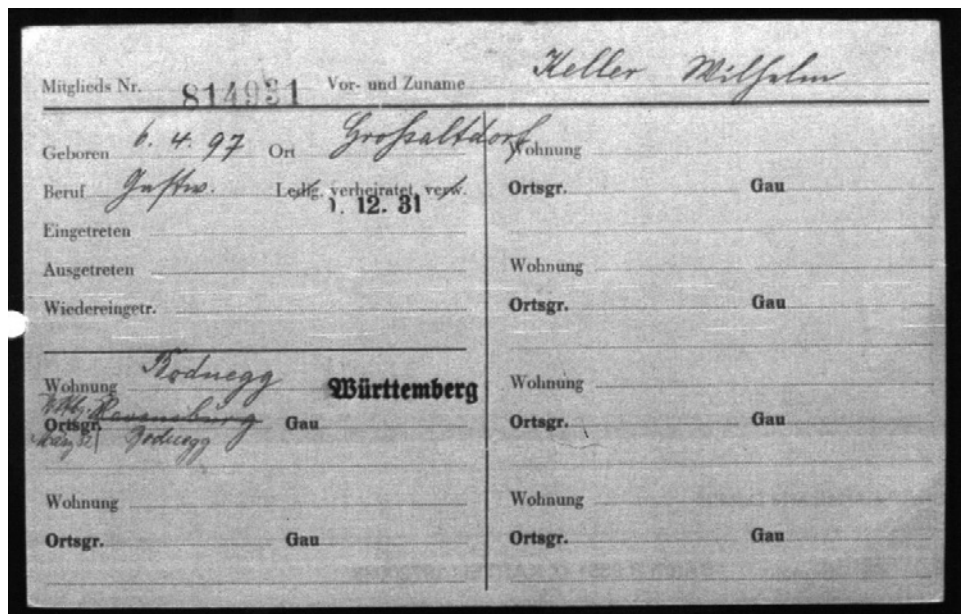 Mitglieds Nr. 814931 Vor- und Zuname Keller Wilhelm
Geboren 6. 4. 97 Ort Großaltdorf
Beruf Gastw. Ledig, verheiratet, verw.
1. 12. 31
Eingetreten
Ausgetreten
Wiedereingetr.
Wohnung Bodnegg
Württemberg
Ortsgr. Ravensburg Gau
März 32 Bodnegg
Wohnung
Ortsgr. Gau
Wohnung
Ortsgr. Gau
Wohnung
Ortsgr. Gau
Wohnung
Ortsgr. Gau
Wohnung
Ortsgr. Gau